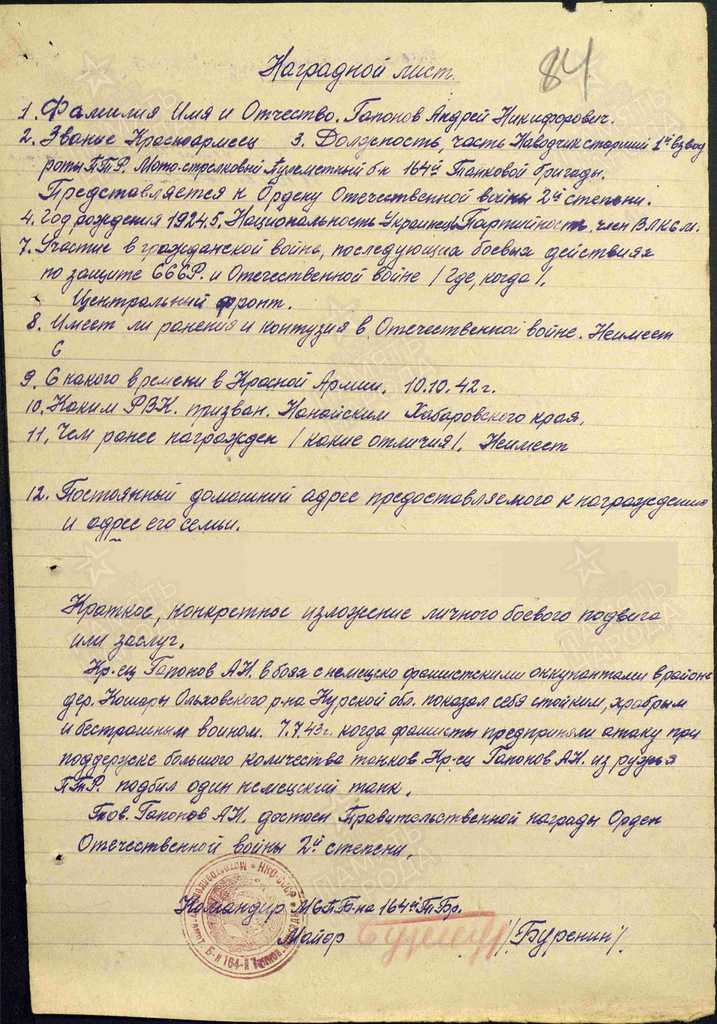 84
Наградной лист.
1. Фамилия Имя и Отчество. Гапонов Андрей Никифорович.
2. Звание Красноармеец 3. Должность, часть Наводчик старший 1й взвод
роты П.Т.Р. Мото-стрелковый Пулеметный б-н 164й Танковой бригады.
Представляется к Ордену Отечественной войны 2й степени.
4. Год рождения 1924 5. Национальность Украинец 6. Партийность член ВЛКСМ.
7. Участие в гражданской войне, последующих боевых действиях
по защите СССР. и Отечественной войне / Где, когда /.
Центральный фронт.
8. Имеет ли ранения и контузия в Отечественной войне. Неимеет
6
9. С какого времени в Красной Армии. 10.10.42 г.
10. Каким РВК. призван. Нанайским Хабаровского края.
11. Чем ранее награжден / какие отличия /. Неимеет
12. Постоянный домашний адрес предоставляемого к награждению
и адрес его семьи.
Краткое, конкретное изложение личного боевого подвига
или заслуг.
Кр.ец Гапонов А.Н. в боях с немецко фашистскими оккупантами в районе
дер. Кошары Ольховского р-на Курской обл. показал себя стойким, храбрым
и бестрашным воином. 7.7.43 г. когда фашисты предприняли атаку при
поддержке большого количества танков Кр.ец Гапонов А.Н. из ружья
П.Т.Р. подбил один немецкий танк.
Тов. Гапонов А.Н. достоен Правительственной награды Орден
Отечественной войны 2й степени.
Командир МСПБ-на 164й ТБр.
Майор /Буренин/